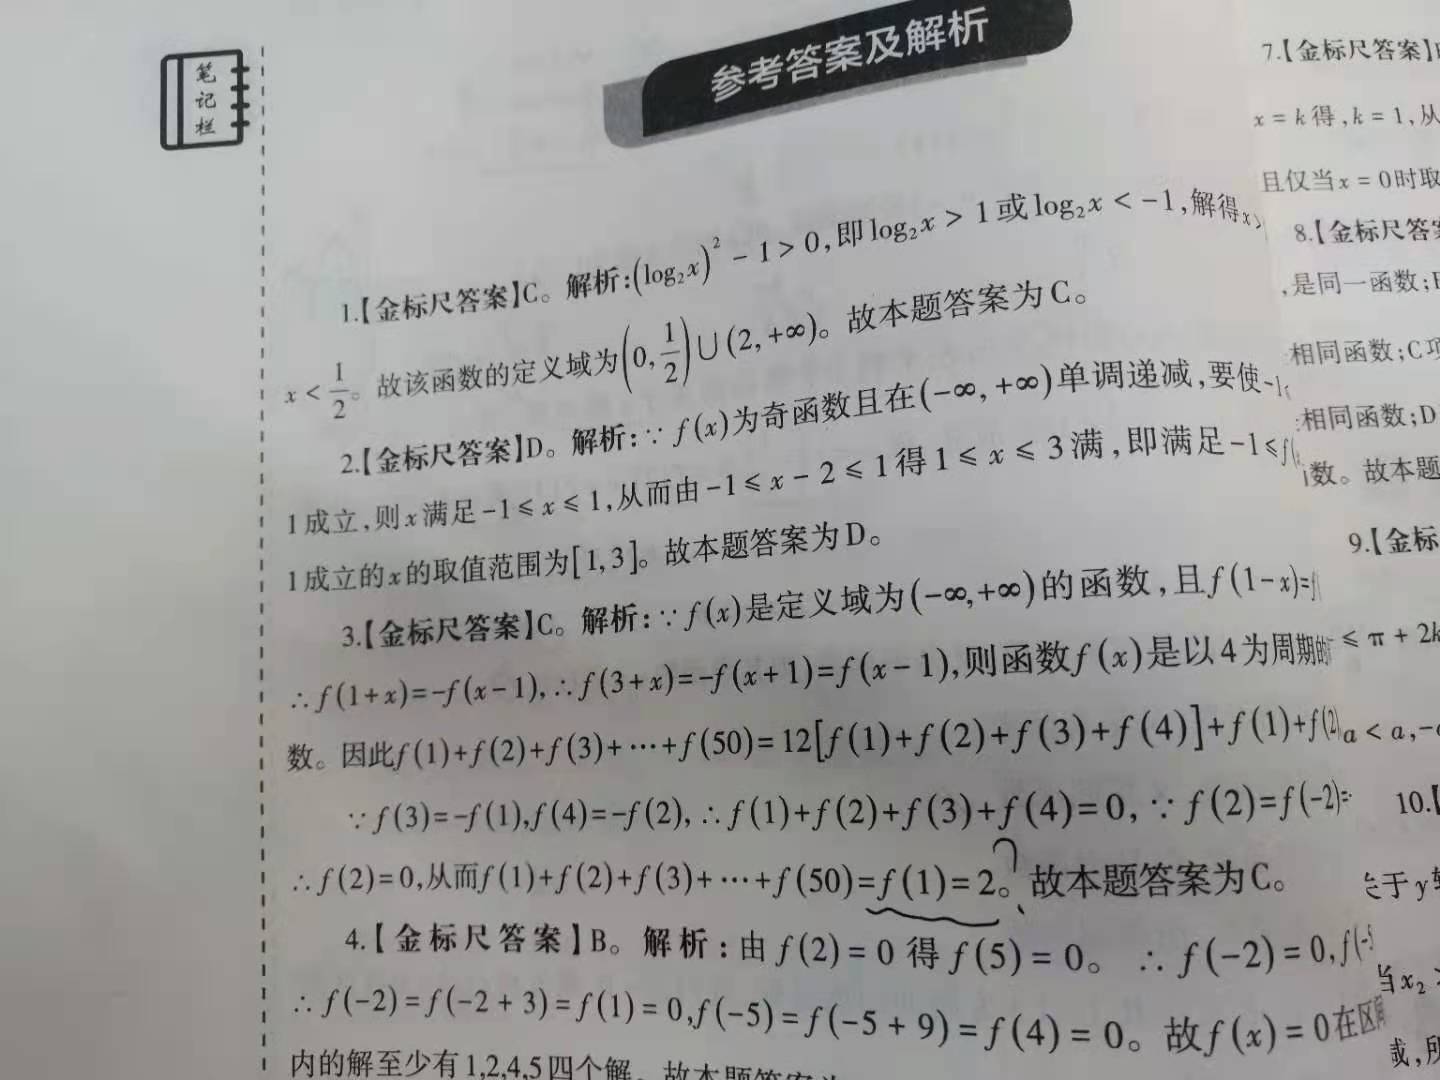 笔记栏
参考答案及解析
1.【金标尺答案】C。解析:(log₂x)² - 1 > 0,即log₂x > 1或log₂x < -1,解得x>
x < 1/2。故该函数的定义域为(0, 1/2)∪(2, +∞)。故本题答案为C。
2.【金标尺答案】D。解析:∵ f(x)为奇函数且在(-∞, +∞)单调递减,要使-1
1成立,则x满足-1≤x≤1,从而由-1≤x-2≤1得1≤x≤3满,即满足-1≤f(
1成立的x的取值范围为[1,3]。故本题答案为D。
3.【金标尺答案】C。解析:∵ f(x)是定义域为(-∞,+∞)的函数,且f(1-x)=f(
∴f(1+x)=-f(x-1),∴f(3+x)=-f(x+1)=f(x-1),则函数f(x)是以4为周期的
数。因此f(1)+f(2)+f(3)+…+f(50)=12[f(1)+f(2)+f(3)+f(4)]+f(1)+f(2)
∵f(3)=-f(1),f(4)=-f(2),∴f(1)+f(2)+f(3)+f(4)=0,∵f(2)=f(-2)=
∴f(2)=0,从而f(1)+f(2)+f(3)+…+f(50)=f(1)=2。故本题答案为C。
?
4.【金标尺答案】B。解析:由f(2)=0得f(5)=0。∴f(-2)=0,f(-5
∴f(-2)=f(-2+3)=f(1)=0,f(-5)=f(-5+9)=f(4)=0。故f(x)=0在区间
内的解至少有1,2,4,5四个解。故本题答案为
7.【金标尺答案】
x = k得,k = 1,从
且仅当x = 0时取
8.【金标尺答案
,是同一函数;B
相同函数;C项
相同函数;D
数。故本题
9.【金标
≤ π + 2k
a < a,-
10.【
关于y轴
当x₂ >
或,所